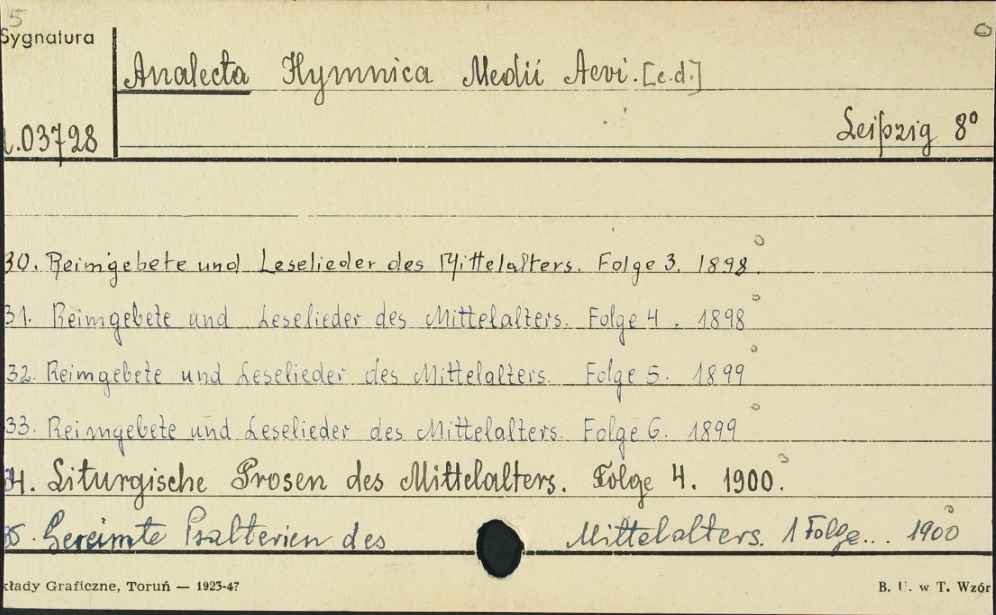 5
Sygnatura
Analecta Hymnica Medii Aevi. [c.d.]
.03728
Leipzig 8°
30. Reimgebete und Leselieder des Mittelalters. Folge 3. 1898.
31. Reimgebete und Leselieder des Mittelalters. Folge 4. 1898
32. Reimgebete und Leselieder des Mittelalters. Folge 5. 1899
33. Reimgebete und Leselieder des Mittelalters. Folge 6. 1899
34. Liturgische Prosen des Mittelalters. Folge 4. 1900.
35. Gereimte Psalterien des Mittelalters. 1 Folge... 1900
kłady Graficzne, Toruń — 1923-47
B. U. w T. Wzór